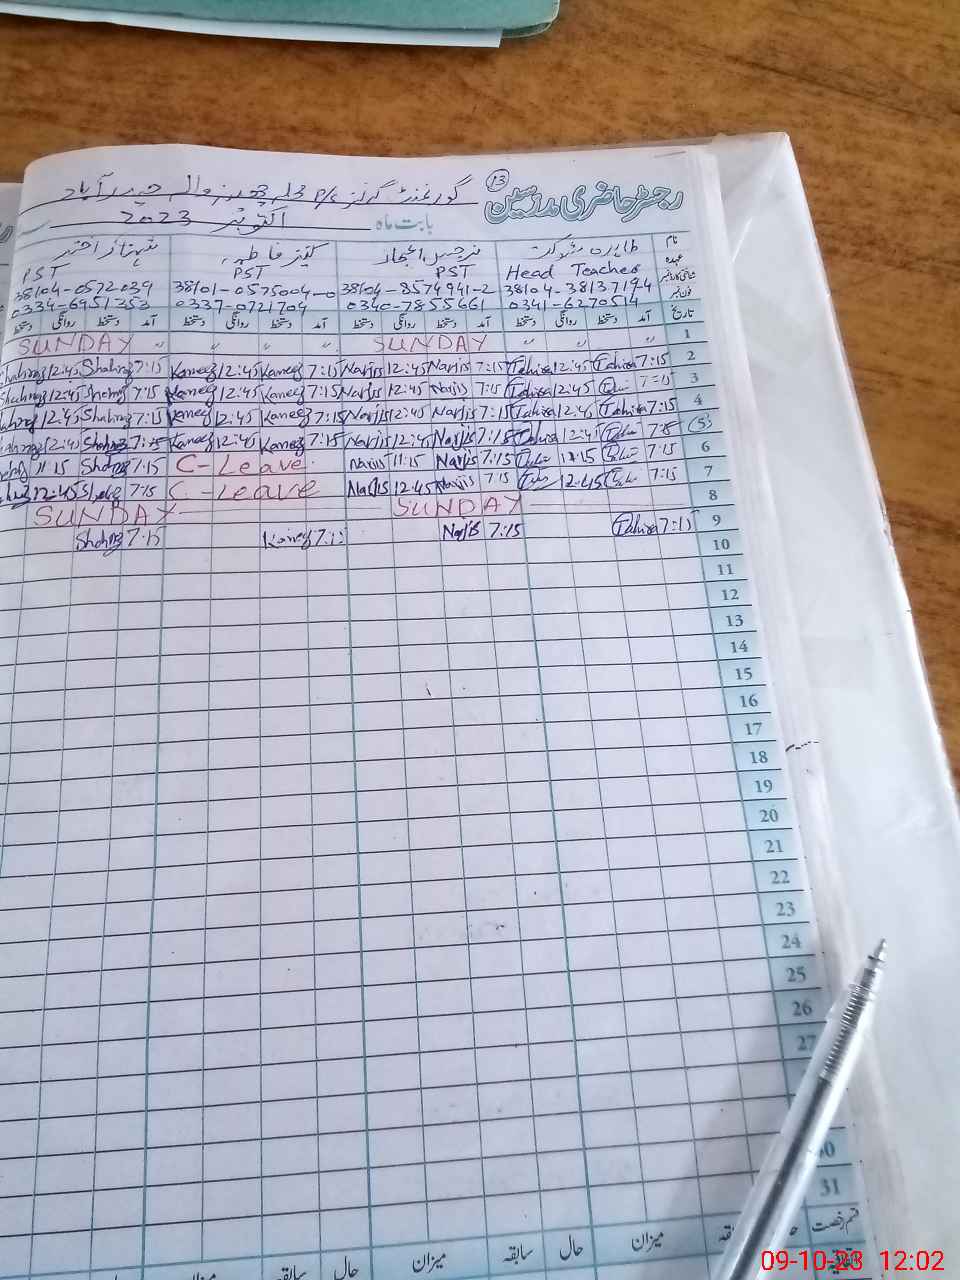 رجسٹر حاضری مدرسین
13
گورنمنٹ گرلز P/S 13 چھورنوالہ حیدرآباد
بابت ماہ اکتوبر 2023
نام طاہرہ شوکت نرجس اعجاز کنیز فاطمہ شہناز اختر
عہدہ Head Teacher PST PST PST
شناختی کارڈ نمبر 38104-3813719-4 38104-8574941-2 38101-0575004-0 38104-0572039
فون نمبر 0341-6270514 0340-7855661 0337-0721704 0334-6951353
تاریخ آمد دستخط روانگی دستخط آمد دستخط روانگی دستخط آمد دستخط روانگی دستخط آمد دستخط روانگی دستخط
SUNDAY " " " " SUNDAY " " " 1
Shahnaz 12:45 Shahnaz 7:15 Kaneez 12:45 Kaneez 7:15 Narjis 12:45 Narjis 7:15 Tahira 12:45 Tahira 7:15 2
Shahnaz 12:45 Shahnaz 7:15 Kaneez 12:45 Kaneez 7:15 Narjis 12:45 Narjis 7:15 Tahira 12:45 7:15 3
12:45 Shahnaz 7:15 Kaneez 12:45 Kaneez 7:15 Narjis 12:45 Narjis 7:15 Tahira 12:45 Tahira 7:15 4
12:45 Shahnaz 7:15 Kaneez 12:45 Kaneez 7:15 Narjis 12:45 Narjis 7:15 Tahira 12:45 5
11:15 Shahnaz 7:15 C-Leave Narjis 11:15 Narjis 7:15 11:15 7:15 6
12:45 7:15 C-Leave Narjis 12:45 Narjis 7:15 12:45 7:15 7
SUNDAY SUNDAY 8
Shahnaz 7:15 Kaneez 7:15 Narjis 7:15 Tahira 7:15 9
10
11
12
13
14
15
16
17
18
19
20
21
22
23
24
25
26
27
30
31
قسم رخصت حال سابقہ میزان حال سابقہ میزان حال سابقہ میزان حال
اتفاقیہ
09-10-23 12:02